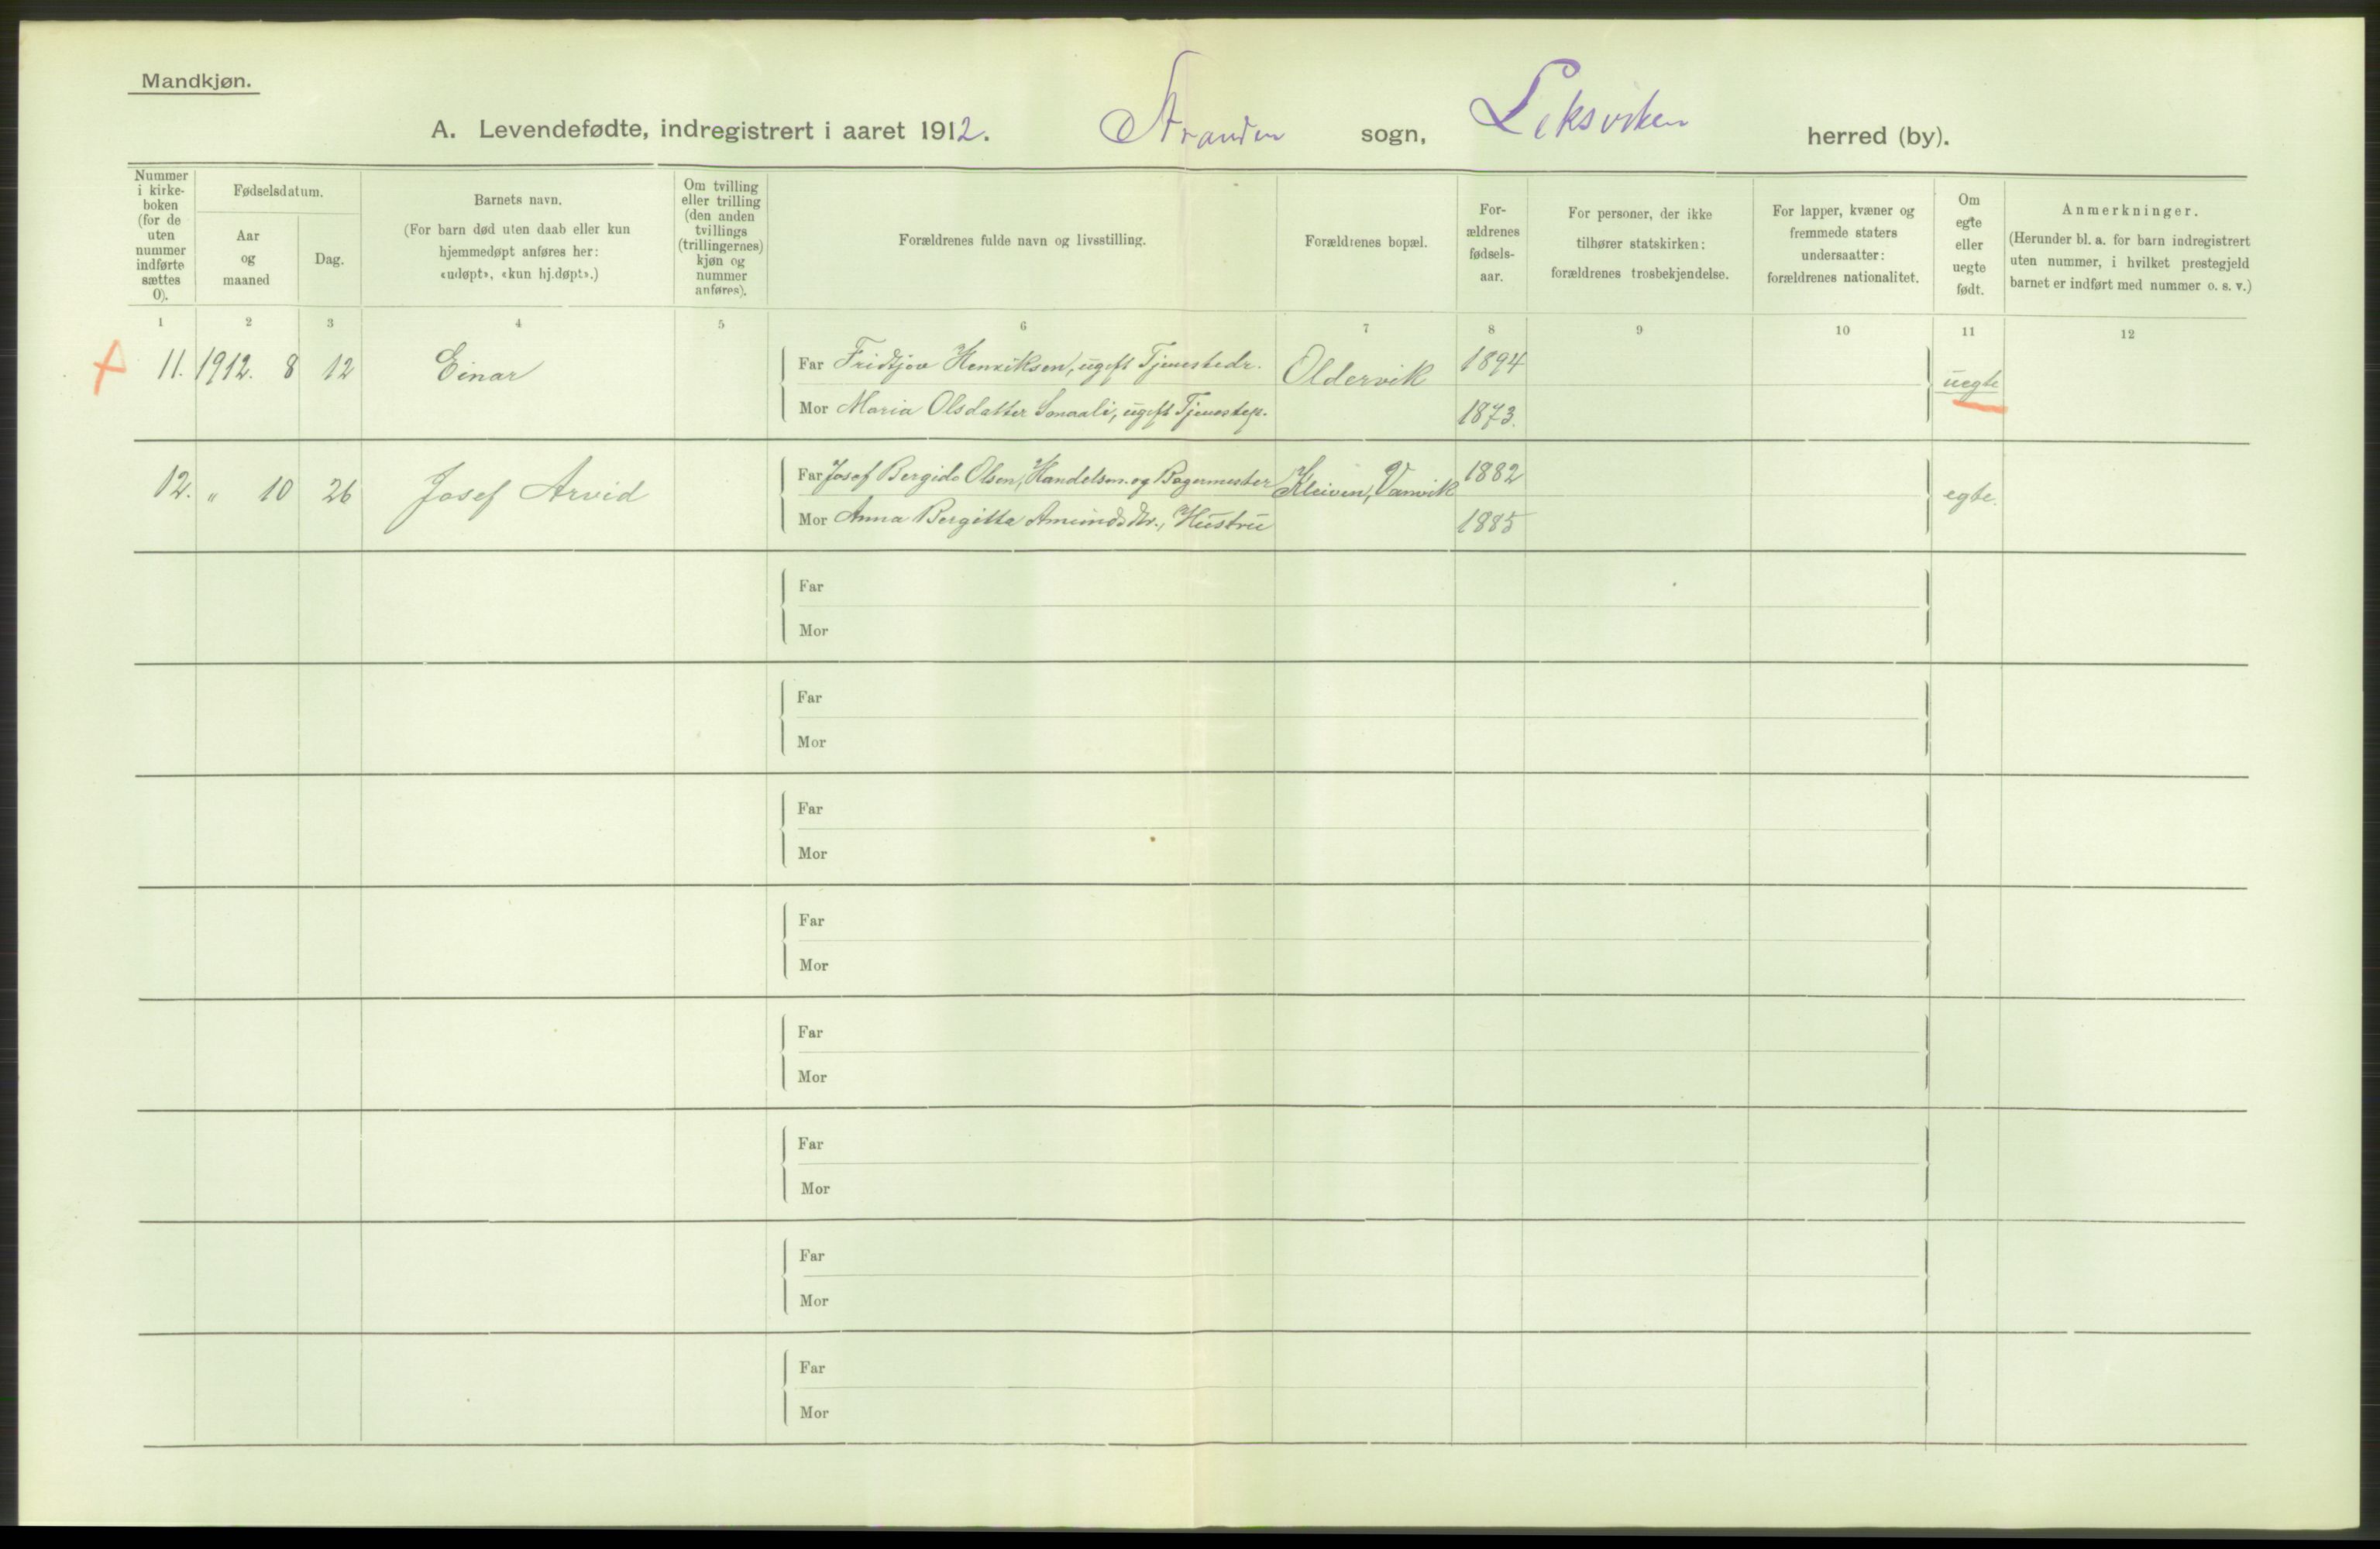 Mandkjøn.
A. Levendefødte, indregistrert i aaret 1912. Stranden sogn, Leksviken herred (by).
Nummer i kirke-boken (for de uten nummer indførte sættes 0).
Fødselsdatum.
Aar og maaned
Dag.
Barnets navn.
(For barn død uten daab eller kun
hjemmedøpt anføres her:
«udøpt», «kun hj.døpt».)
Om tvilling
eller trilling
(den anden
tvillings
(trillingernes)
kjøn og
nummer
anføres).
Forældrenes fulde navn og livsstilling.
Forældrenes bopæl.
For-
ældrenes
fødsels-
aar.
For personer, der ikke
tilhører statskirken:
forældrenes trosbekjendelse.
For lapper, kvæner og
fremmede staters
undersaatter:
forældrenes nationalitet.
Om
egte
eller
uegte
født.
Anmerkninger.
(Herunder bl. a. for barn indregistrert
uten nummer, i hvilket prestegjeld
barnet er indført med nummer o. s. v.)
1 2 3 4 5 6 7 8 9 10 11 12
11. 1912. 8 12 Einar Far Fridtjov Henriksen, ugift Tjenestedr. Oldervik 1894 uegte
Mor Maria Olsdatter ugift Tjenestep. 1873.
12. " 10 26 Josef Arvid Far Josef Bergido Olsen, Handelsm. og Bagermester Kleiven, Vanvik 1882 egte.
Mor Anna Bergitta Amundsdtr., Hustru 1885
Far
Mor
Far
Mor
Far
Mor
Far
Mor
Far
Mor
Far
Mor
Far
Mor
Far
Mor